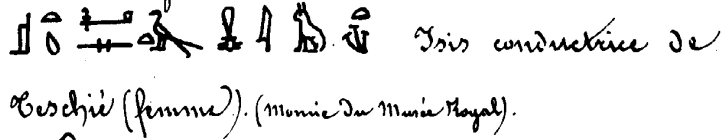 Isis conductrice de
Teschié (femme). (Momie du Musée Royal).